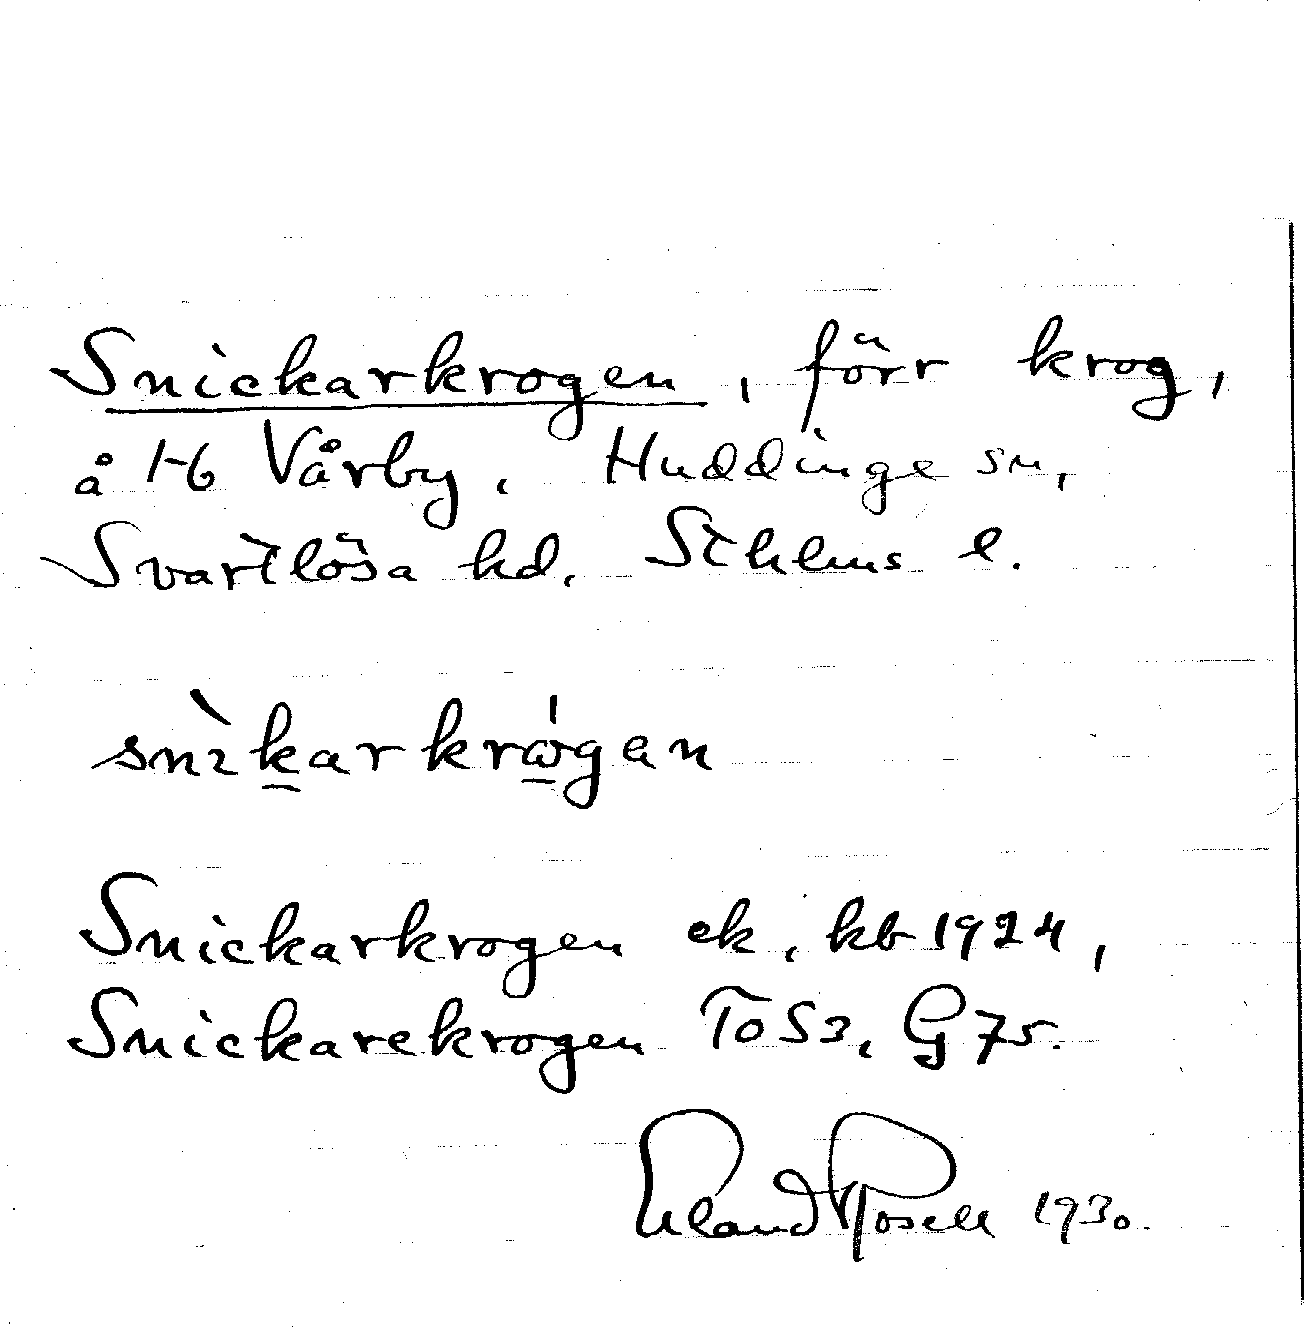 Snickarkrogen, förr krog,
å 1-6 Vårby, Huddinge sn,
Svartlösa hd, Sthlms l.
snìkarkrωgan
Snickarkrogen ek, kb 1924,
Snickarekrogen ToS3, G 75.
Erland Rosell 1930.